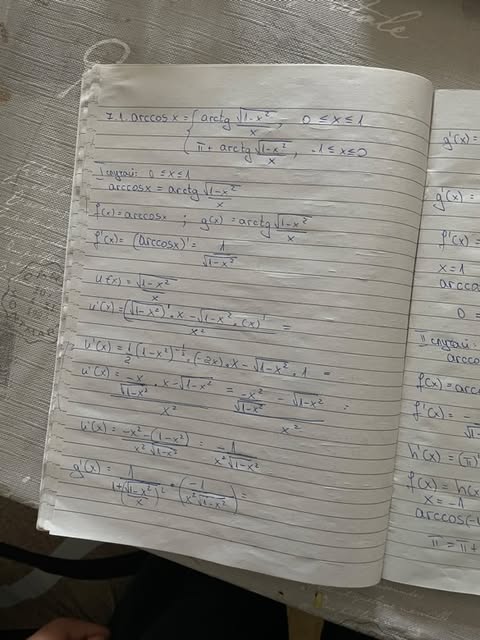 7.1. arccos x = { arctg √(1-x²)/x, 0 ≤ x ≤ 1
π + arctg √(1-x²)/x, -1 ≤ x ≤ 0
I случай: 0 ≤ x ≤ 1
arccosx = arctg √(1-x²)/x
f(x) = arccosx ; g(x) = arctg √(1-x²)/x
f'(x) = (arccosx)' = 1/√(1-x²)
u(x) = √(1-x²)/x
u'(x) = ((√(1-x²))'.x - √(1-x²).(x)')/x² =
u'(x) = 1/2 (1-x²)^(-1/2).(-2x).x - √(1-x²).1 =
u'(x) = (-x/√(1-x²).x - √(1-x²))/x² = (-x²/√(1-x²) - √(1-x²))/x² =
u'(x) = (-x² - (1-x²))/(x²√(1-x²)) = -1/(x²√(1-x²))
g'(x) = 1/(1+(√(1-x²)/x)²) . (-1/(x²√(1-x²))) =
g'(x) =
g'(x) =
f'(x) =
x = 1
arccos
0 =
II случай:
arccos
f(x) = arcc
f'(x) = -
h'(x) = (π)'
f(x) = h(x
x = -1
arccos(-1
π = π +